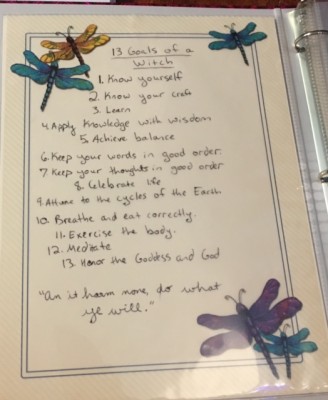 13 Goals of a
Witch
1. Know yourself
2. Know your craft
3. Learn
4. Apply Knowledge with wisdom
5. Achieve balance
6. Keep your words in good order.
7. Keep your thoughts in good order
8. Celebrate life
9. Attune to the cycles of the Earth
10. Breathe and eat correctly.
11. Exercise the body.
12. Meditate
13. Honor the Goddess and God
"An it harm none, do what
ye will."